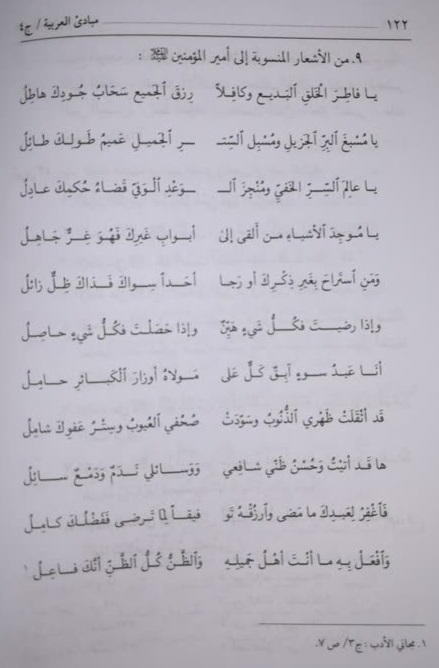 ١٢٢ مبادئ العربية / ج٤
٩. من الأشعار المنسوبة إلى أمير المؤمنين ﷺ :
يا فاطِرَ الخَلقِ البَديعِ وكافِلاً رِزقَ الجَميعِ سَحَابُ جُودِكَ هاطِلُ
يا مُسْبِغَ البِرِّ الجَزيلِ ومُسْبِل السِّتـ ـرِ الجَميلِ عَميمُ طَولِكَ طائِلُ
يا عالِمَ السِّرِّ الخَفيِّ ومُنْجِزَ الـ ـوَعْدِ الْوَفيِّ قَضاءُ حُكمِكَ عادِلُ
يا مُوجِدَ الأشياءِ من ألقى إلى أبوابِ غَيرِكَ فَهْوَ غِرٌّ جَاهِلُ
وَمَنِ اسْتَراحَ بِغَيرِ ذِكْرِكَ أو رَجا أحَداً سِواكَ فَذاكَ ظِلٌّ زائلُ
وإذا رضيتَ فكُلُّ شَيءٍ هَيِّنٌ وإذا حَصَلْتَ فكُلُّ شَيءٍ حاصِلُ
أنا عَبدُ سوءٍ آبِقٌ كَلٌّ عَلى مَولاهُ أوزارَ الْكَبائرِ حامِلُ
قَد أثقَلَتْ ظَهْري الذُّنُوبُ وسَوَّدَتْ صُحُفي العُيوبُ وسِتْرُ عَفوِكَ شامِلُ
ها قَد أتيْتُ وَحُسْنُ ظَنّي شافِعي وَوَسائلي نَدَمٌ وَدَمْعٌ سائِلُ
فَاغْفِرْ لِعَبدِكَ ما مَضى وارزُقْهُ تَو فيقاً لِما تَرضى فَفَضْلُكَ كامِلُ
وَافْعَلْ بِهِ ما أنْتَ أهْلُ جَميلِهِ وَالظَّنُّ كُلُّ الظَّنِّ أنَّكَ فاعِلُ ١
١. مجاني الأدب : ج٣/ ص ٧.